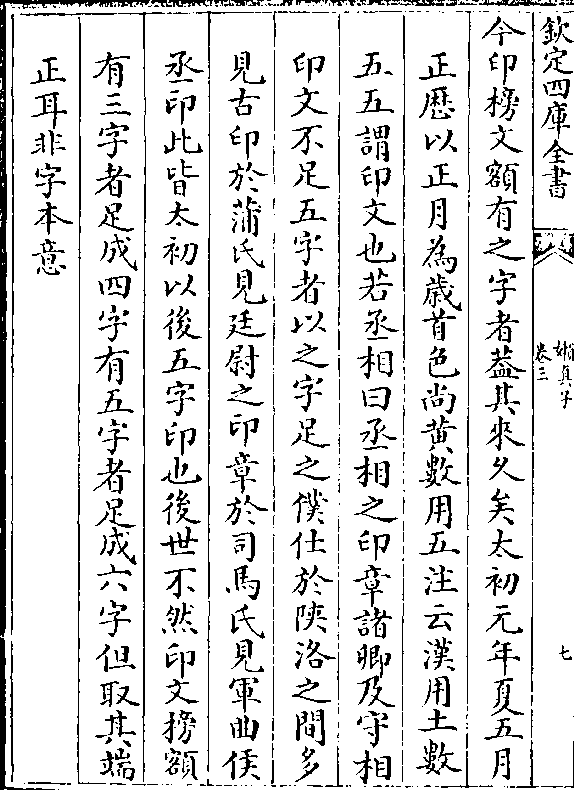 欽定四庫全書
嬾真子
卷三
七
今印榜文額有之字者葢其來久矣太初元年夏五月
正歴以正月為歲首色尚黄數用五注云漢用土數
五五謂印文也若丞相曰丞相之印章諸卿及守相
印文不足五字者以之字足之僕仕於陜洛之間多
見古印於蒲氏見廷尉之印章於司馬氏見軍曲侯
丞印此皆太初以後五字印也後世不然印文榜額
有三字者足成四字有五字者足成六字但取其端
正耳非字本意